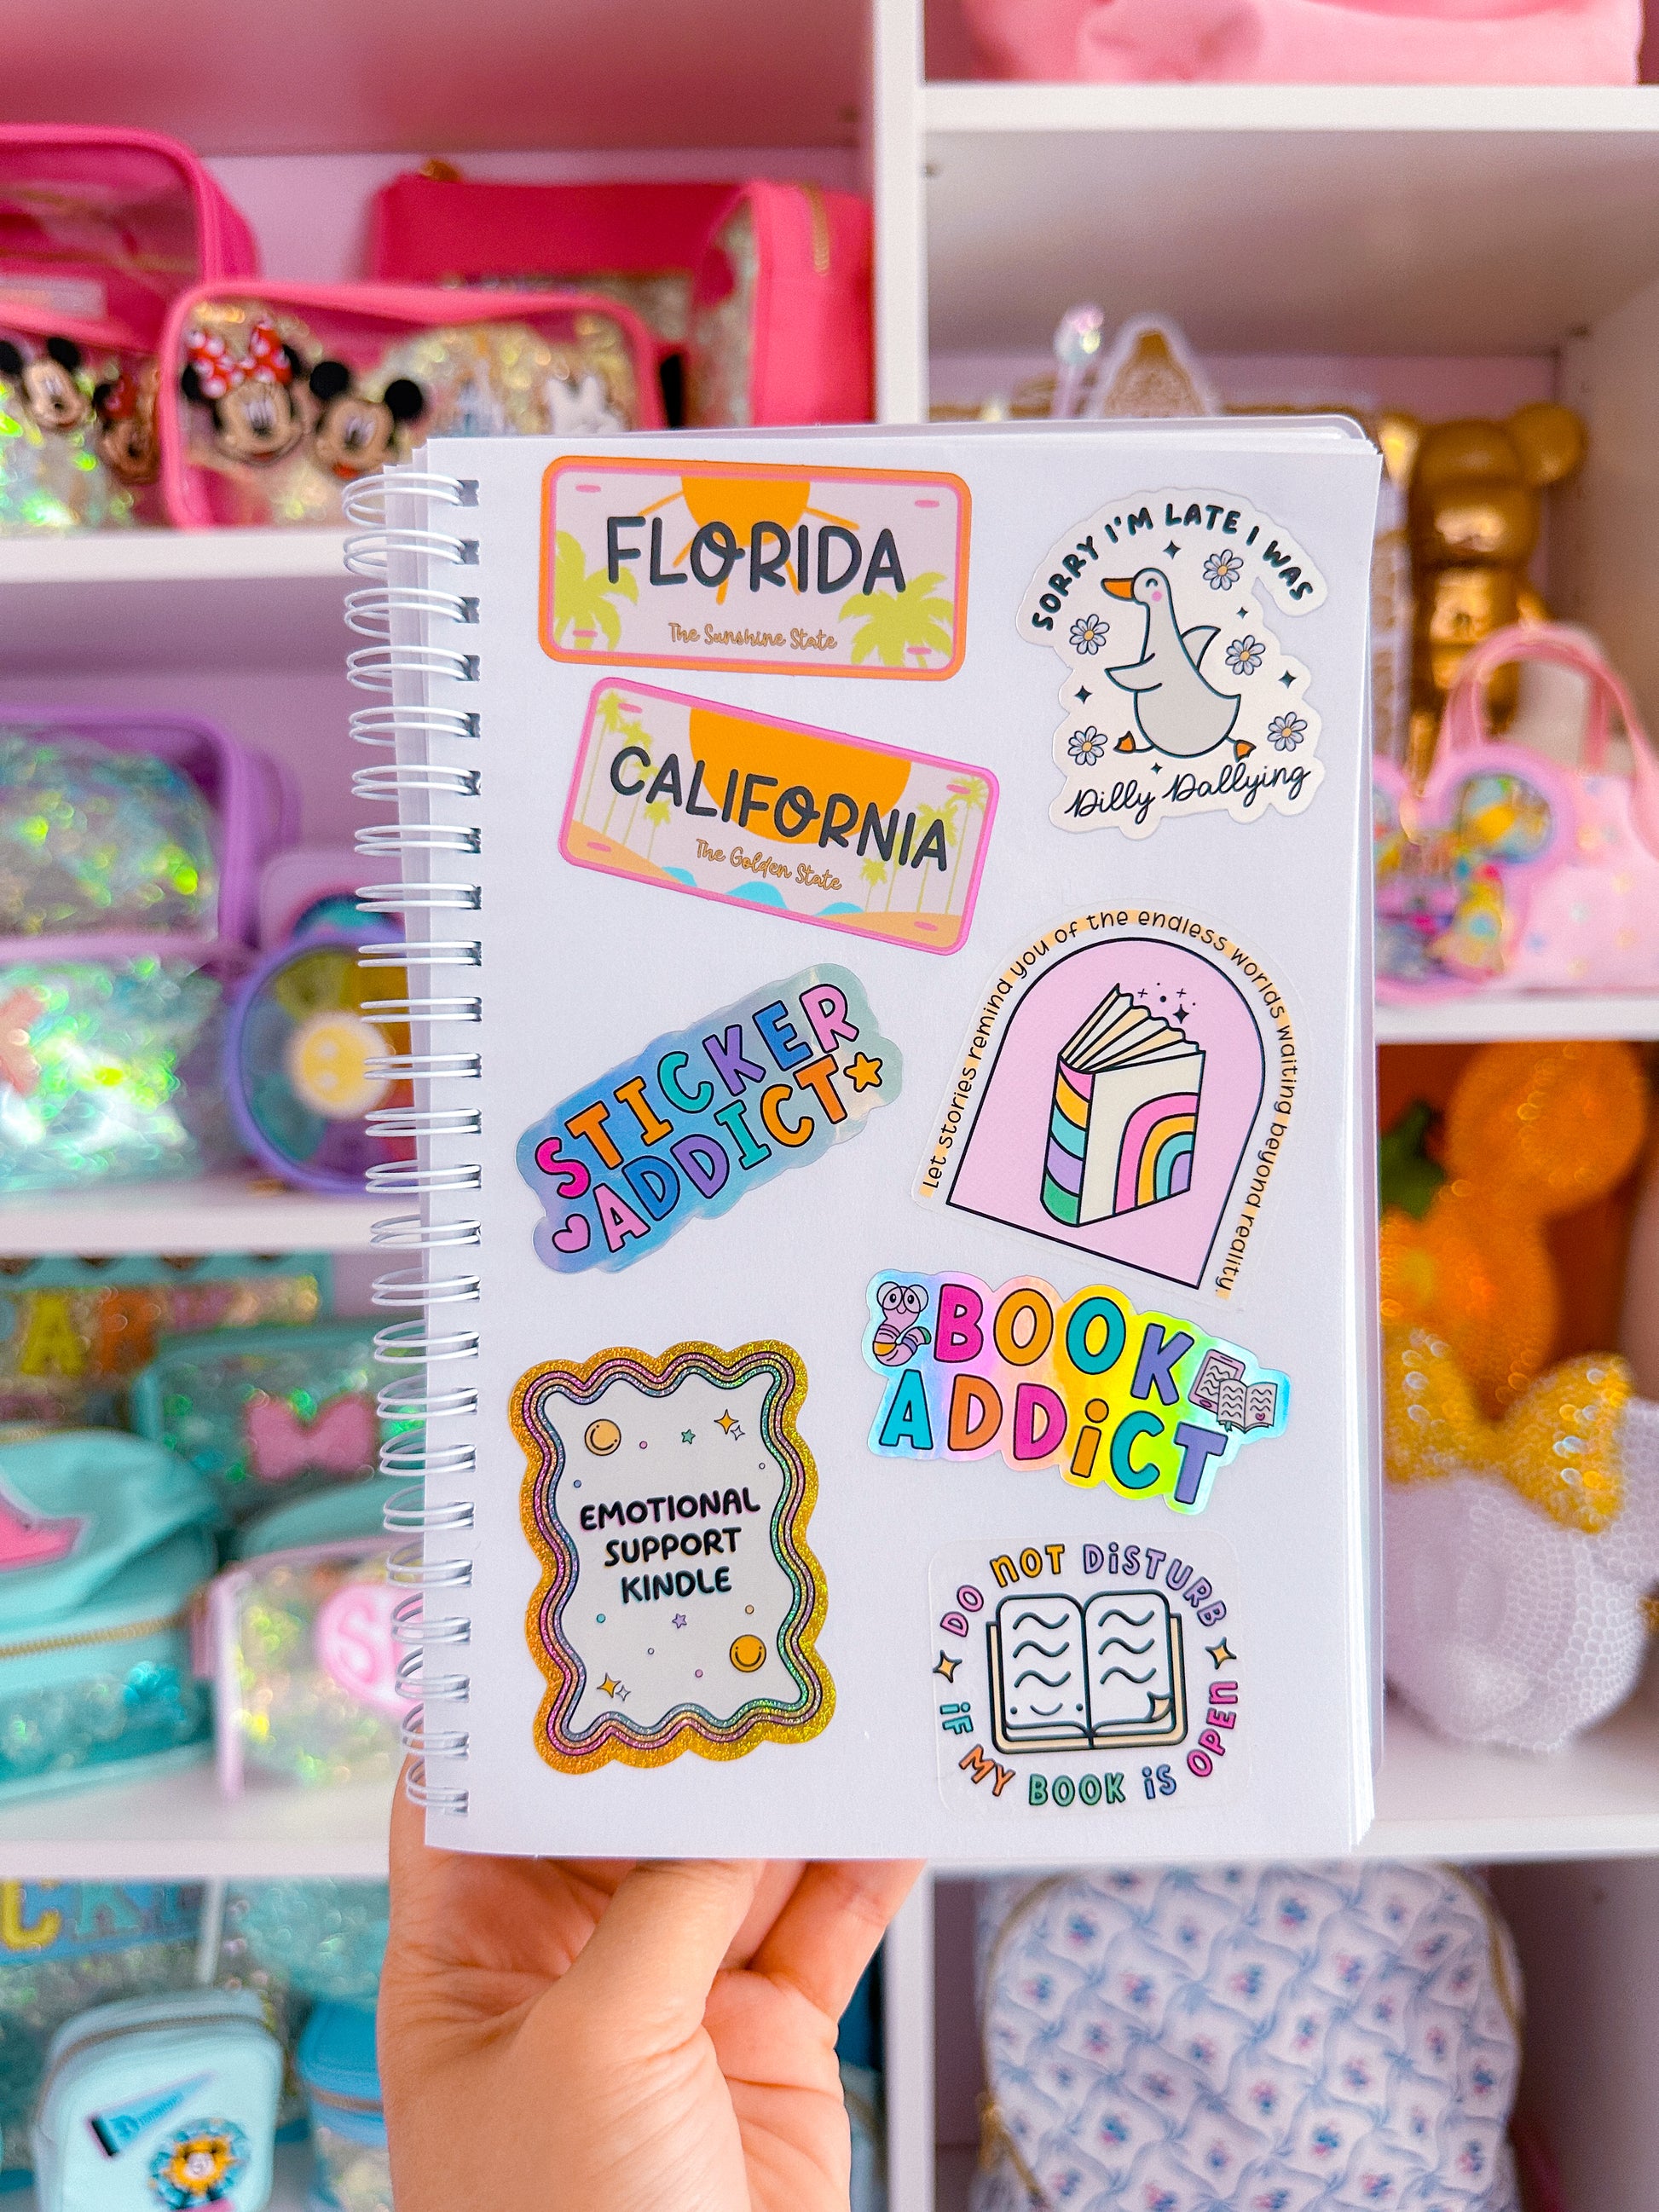 FLORIDA
The Sunshine State
SORRY I'M LATE I WAS
Dilly Dallying
CALIFORNIA
The Golden State
Let stories remind you of the endless worlds waiting beyond reality.
STICKER
ADDICT
BOOK
ADDiCT
EMOTIONAL
SUPPORT
KINDLE
DO NOT DiSTURB
iF MY BOOK iS OPEN